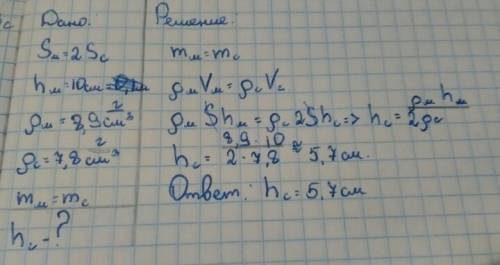 Дано:
Sм = 2Sс
hм = 10см =
ρм = 8,9 г/см³
ρс = 7,8 г/см³
mм = mс
hс - ?
Решение:
mм = mс
ρмVм = ρсVс
ρм Shм = ρс 2Shс => hс = ρм hм / 2ρс
hс = 8,9 · 10 / 2 · 7,8 ≈ 5,7 см.
Ответ: hс = 5,7 см